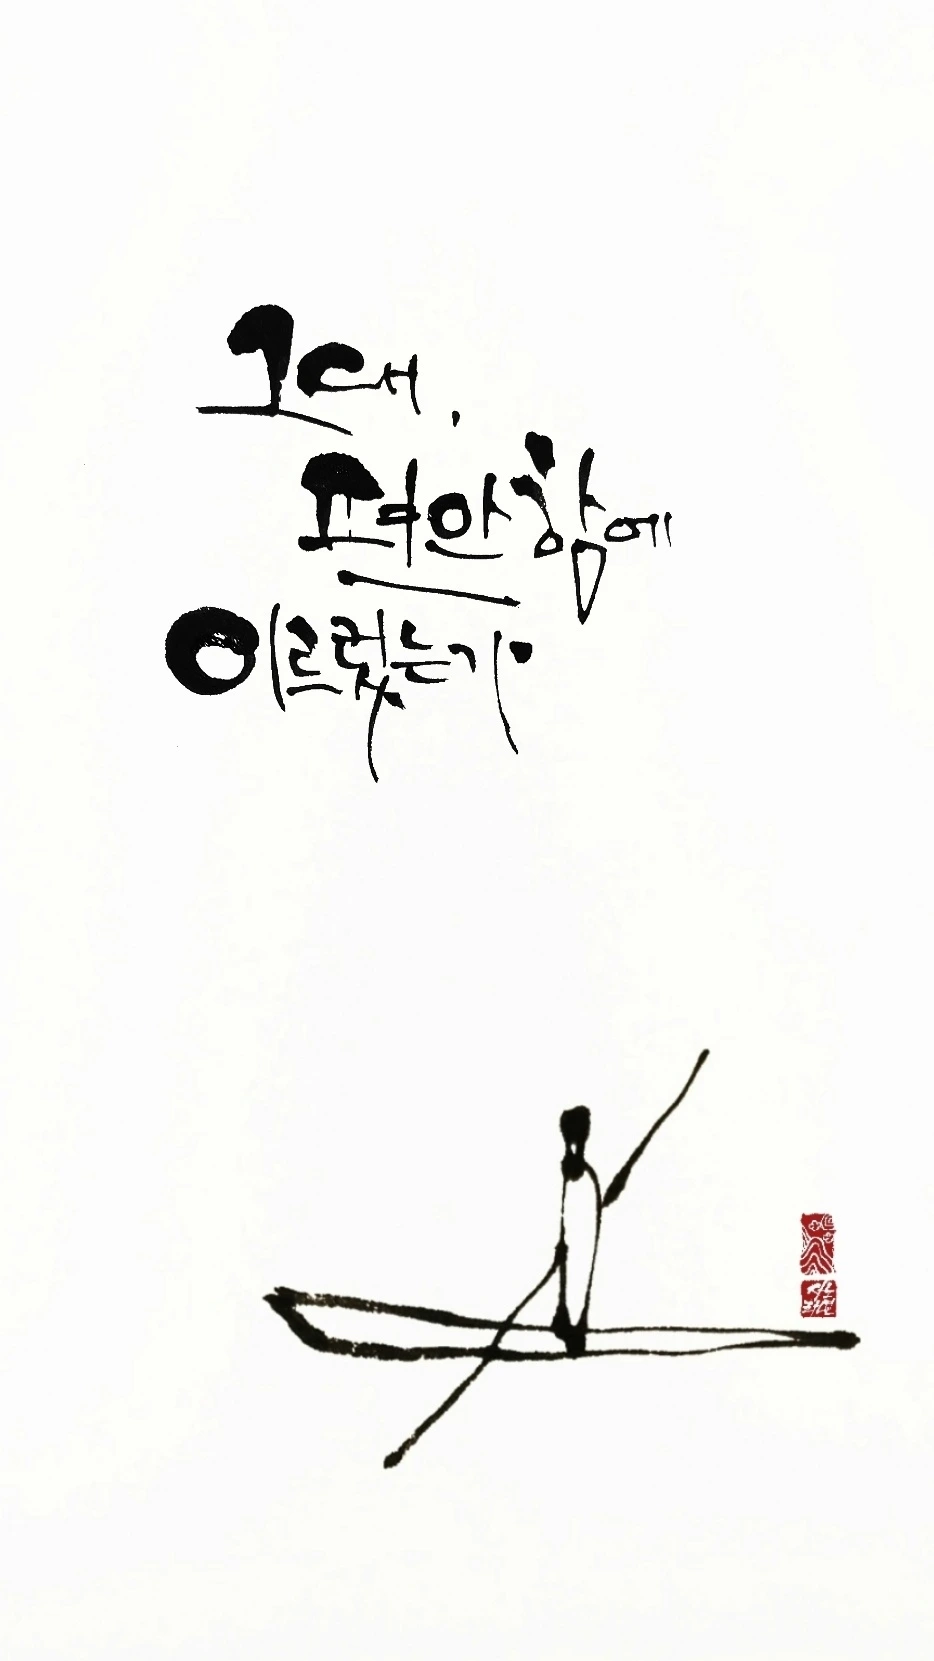 그대,
편안함에
이르렀는가